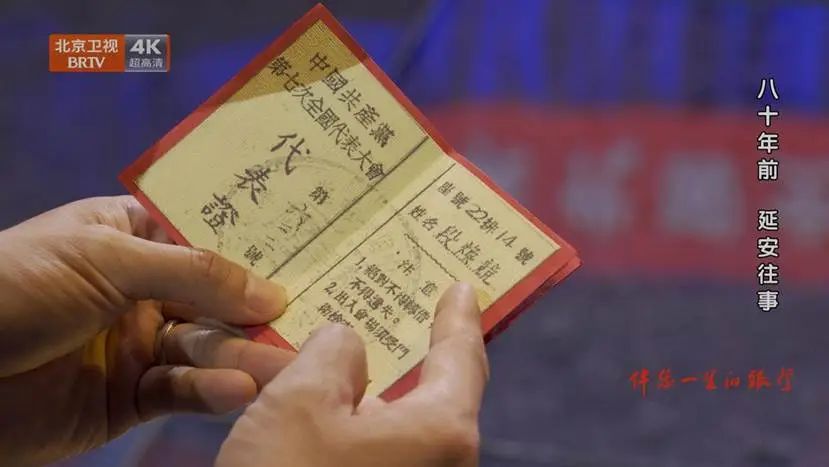 北京卫视
BRTV
4K
超高清
八十年前 延安往事
中國共產黨
第七次全國代表大會
代表證
第六三二號
座號22排14號
姓名段煥競
注意
1.絕對不得轉借
不得遺失。
2.出入會場須受門
衛檢
伴您一生的银行